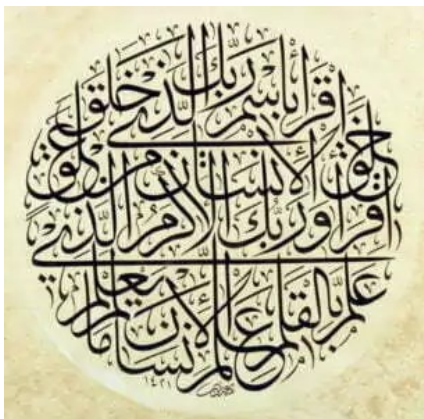 اقرأ باسم ربك الذي خلق
خلق الإنسان من علق
اقرأ وربك الأكرم الذي
علم بالقلم علم الإنسان ما لم يعلم
١٤٢١